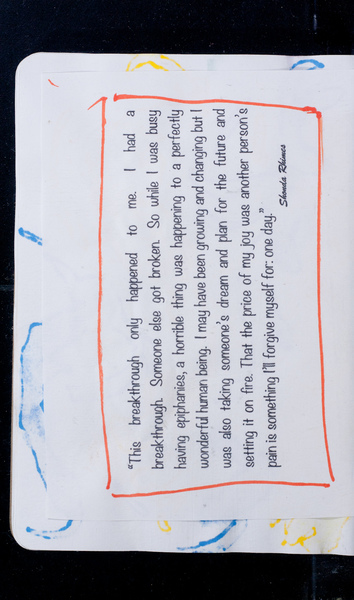 “This breakthrough only happened to me. I had a
breakthrough. Someone else got broken. So while I was busy
having epiphanies, a horrible thing was happening to a perfectly
wonderful human being. I may have been growing and changing but I
was also taking someone's dream and plan for the future and
setting it on fire. That the price of my joy was another person's
pain is something I'll forgive myself for: one day.”
Shonda Rhimes